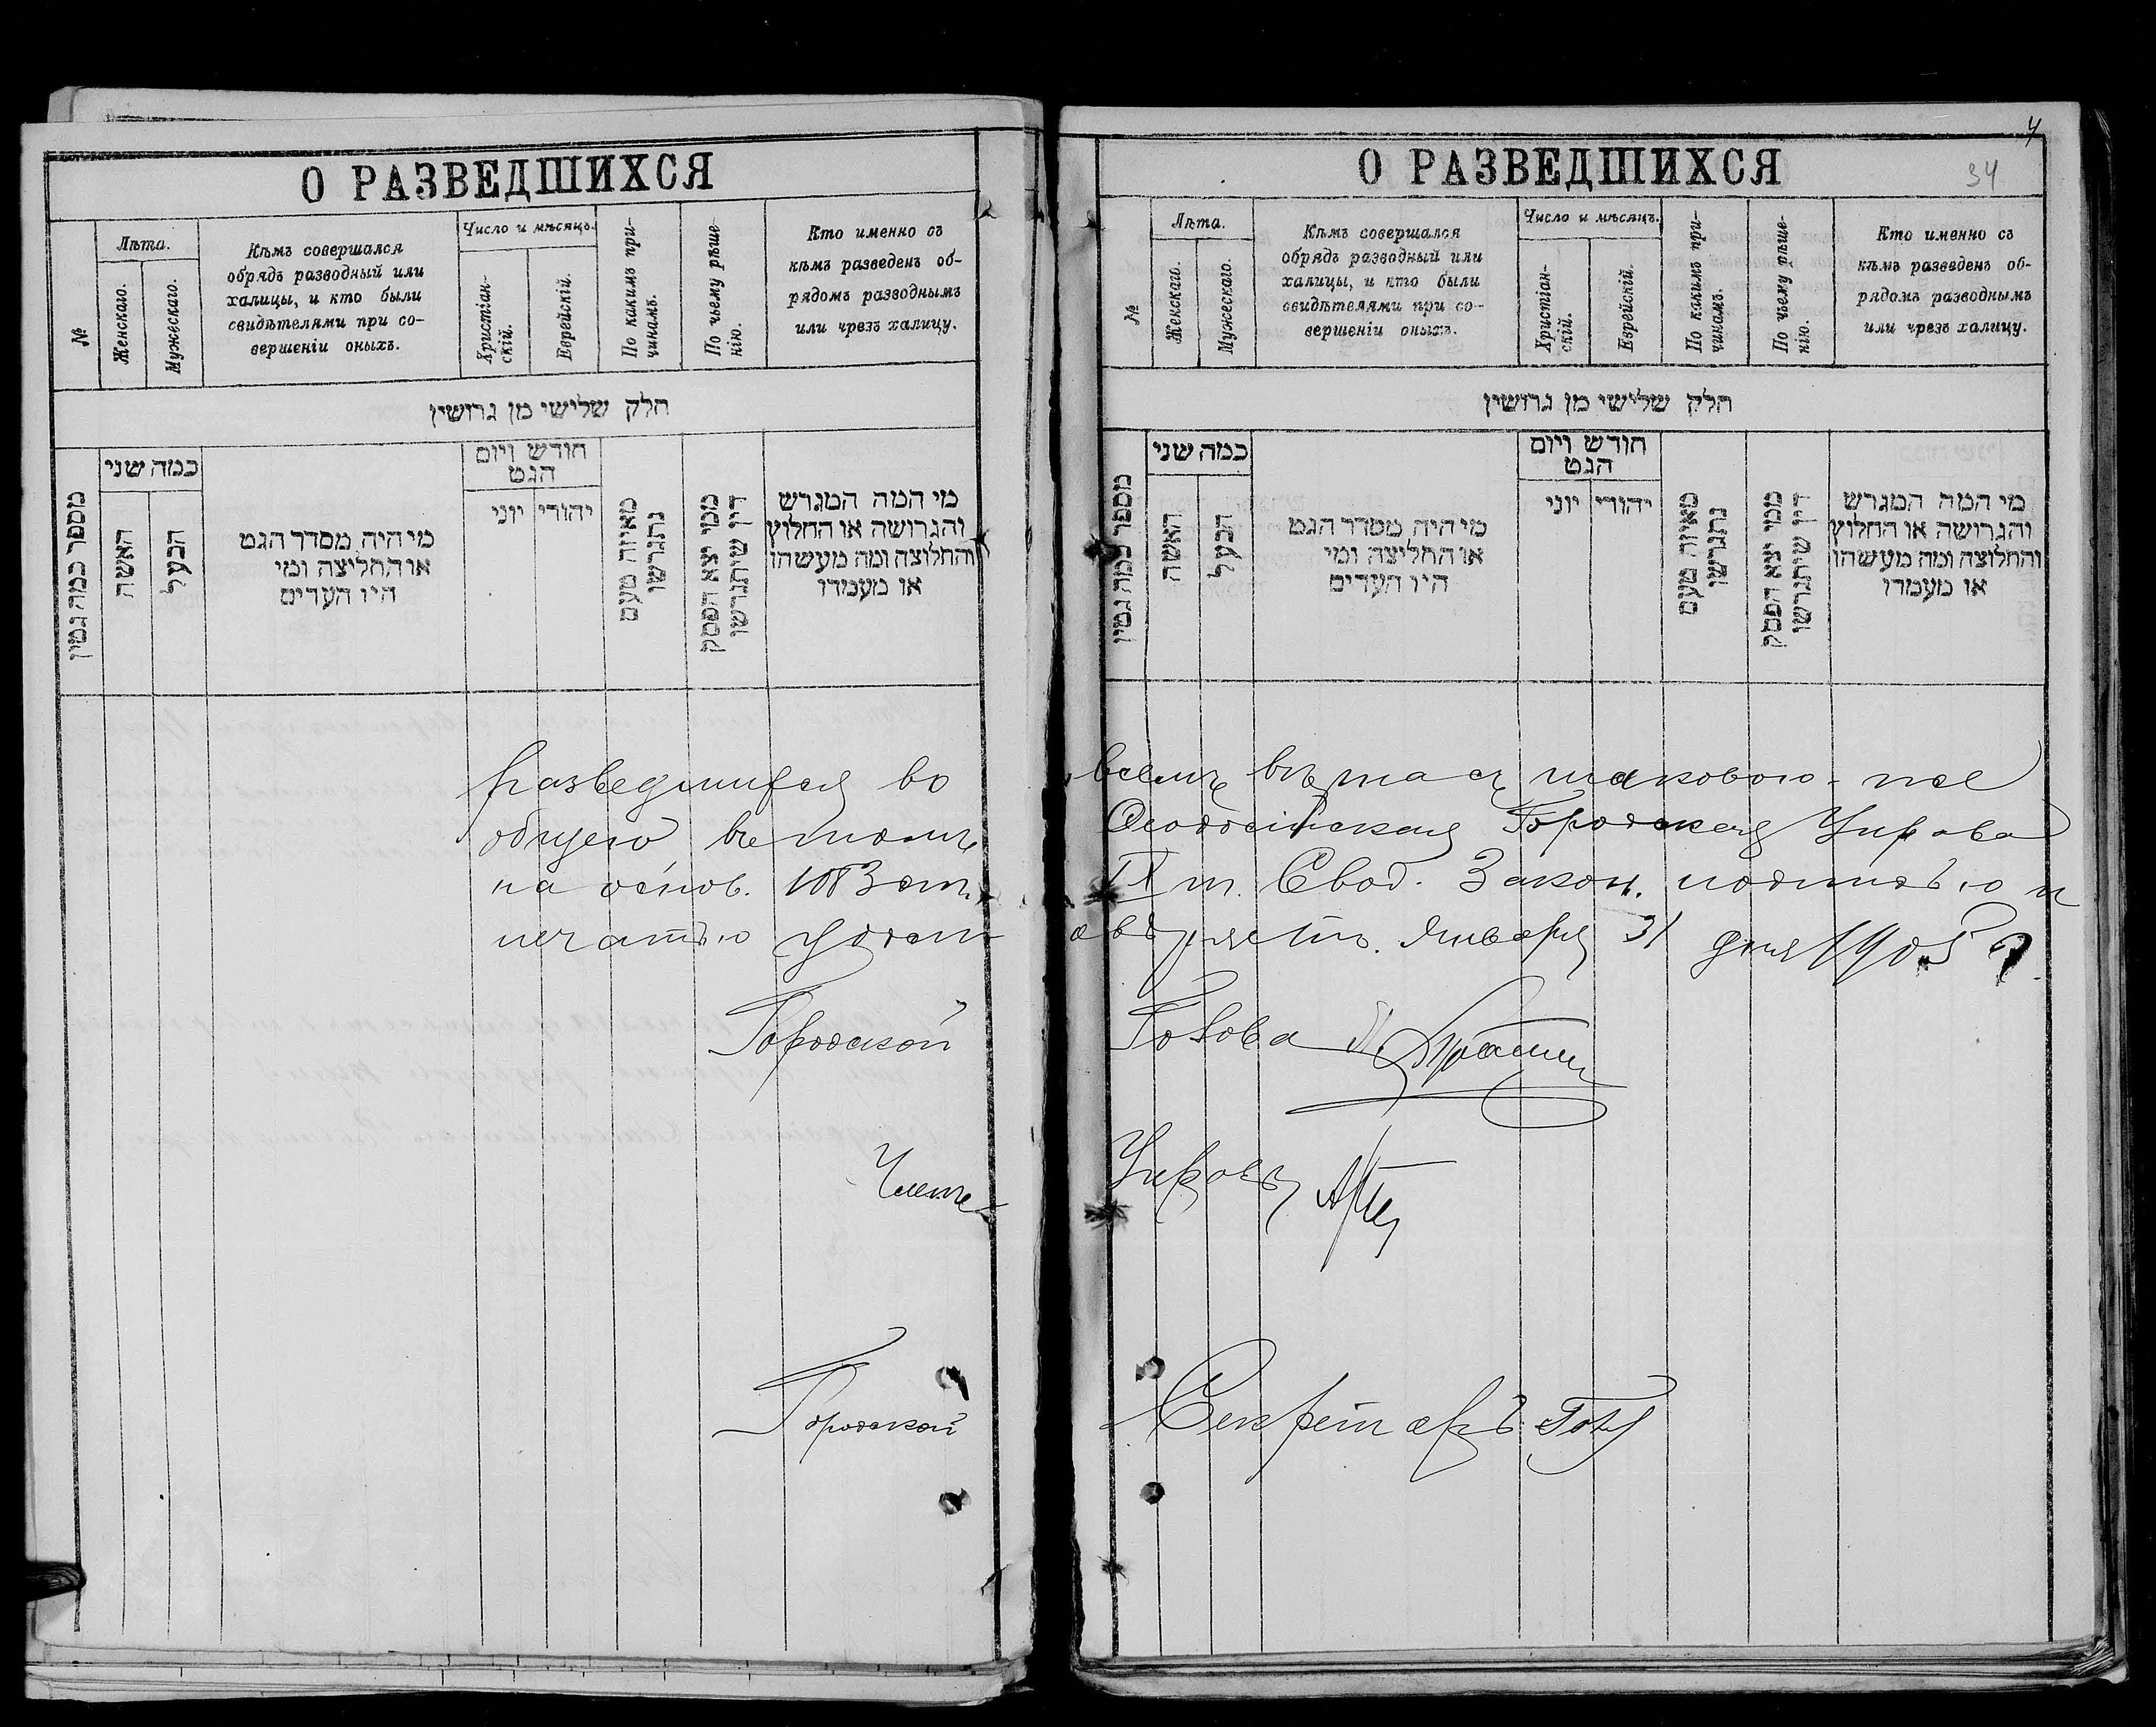 О РАЗВЕДШИХСЯ
№
Лѣта.
Женскаго.
Мужескаго.
Кѣмъ совершался
обрядъ разводный или
халицы, и кто были
свидѣтелями при со-
вершеніи оныхъ.
Число и мѣсяцъ.
Христіан-
скій.
Еврейскій.
По какимъ при-
чинамъ.
По чьему рѣше-
нію.
Кто именно съ
кѣмъ разведенъ об-
рядомъ разводнымъ
или чрезъ халицу.
חלק שלישי מן גרושין
מספר כמה גטין
כמה שני
האשה
הבעל
מי היה מסדר הגט
או החליצה ומי
היו העדים
חודש ויום
הגט
יוני
יהודי
מאיזה טעם
נתגרשו
ממי יצא הפסק
דין שיתגרשו
מי המה המגרש
והגרושה או החלוץ
והחלוצה ומה מעשהו
או מעמדו
разведшихся во
общею въ томъ
на основ. 1083 ст.
печатью удост
Городской
Членъ
Городской
4
34
О РАЗВЕДШИХСЯ
№
Лѣта.
Женскаго.
Мужескаго.
Кѣмъ совершался
обрядъ разводный или
халицы, и кто были
свидѣтелями при со-
вершеніи оныхъ.
Число и мѣсяцъ.
Христіан-
скій.
Еврейскій.
По какимъ при-
чинамъ.
По чьему рѣше-
нію.
Кто именно съ
кѣмъ разведенъ об-
рядомъ разводнымъ
или чрезъ халицу.
חלק שלישי מן גרושין
מספר כמה גטין
כמה שני
האשה
הבעל
מי היה מסדר הגט
או החליצה ומי
היו העדים
חודש ויום
הגט
יוני
יהודי
מאיזה טעם
נתגרשו
ממי יצא הפסק
דין שיתגרשו
מי המה המגרש
והגרושה או החלוץ
והחלוצה ומה מעשהו
או מעמדו
всемъ таковою-же
Ѳеодосійская Городская Управа
IX т. Свод. Закон. подписью и
овѣряетъ. Января 31 дня 1905 г.
Голова
Управы
Секретарь